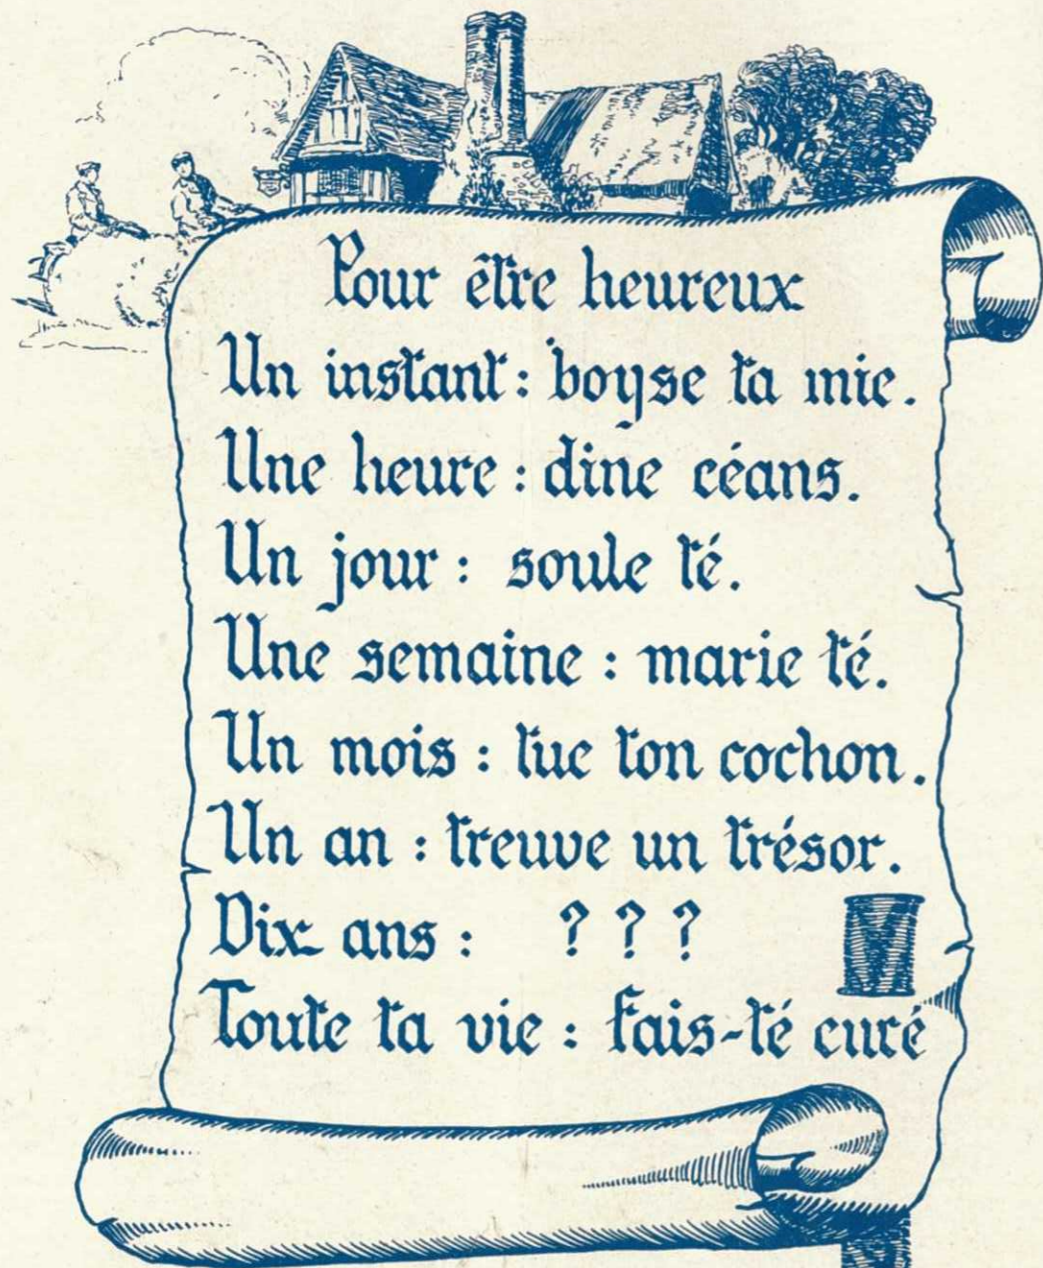 Pour être heureux
Un instant : boyse ta mie.
Une heure : dine céans.
Un jour : soule té.
Une semaine : marie té.
Un mois : tue ton cochon.
Un an : treuve un trésor.
Dix ans : ? ? ?
Toute ta vie : fais-té curé